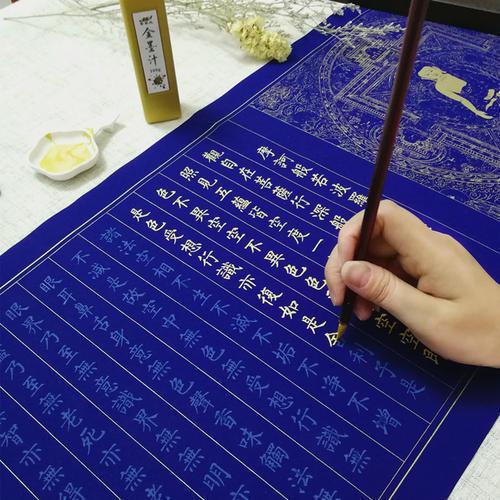 金墨汁
100g
摩訶般若波羅
觀自在菩薩行深般
照見五蘊皆空度一
色不異空空不異色色空空即
是色受想行識亦復如是舍利子是
諸法空相不生不滅不垢不淨不增
不減是故空中無色無受想行識無
眼耳鼻舌身意無色聲香味觸法
眼界乃至無意識界無無明
盡乃至無老死亦無
智亦無得